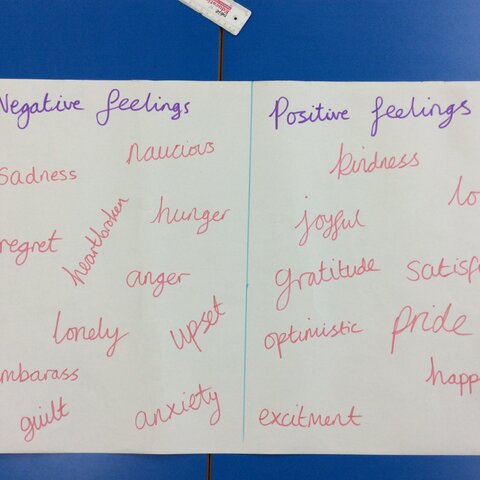 Negative feelings
naucious
sadness
hunger
heartbroken
regret
anger
upset
lonely
mbarass
anxiety
guilt
Positive feelings
kindness
lo
joyful
gratitude
satisf
pride
optimistic
happ
excitment